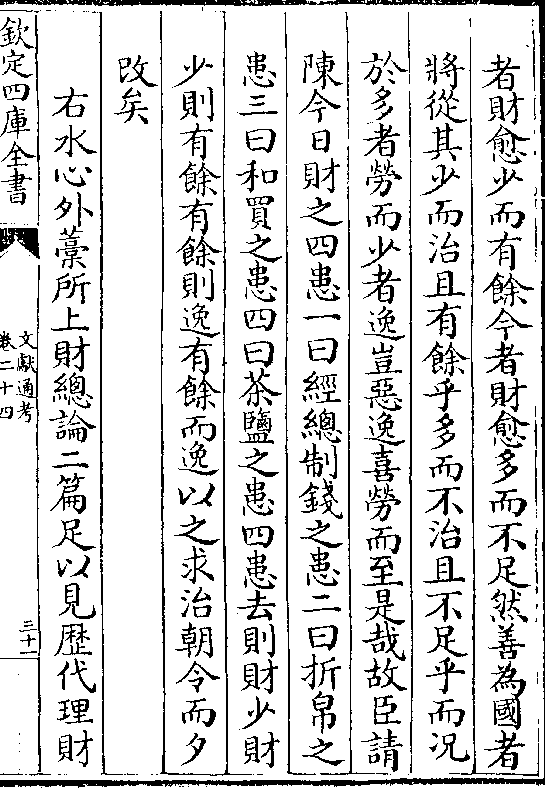 者財愈少而有餘今者財愈多而不足然善為國者
將從其少而治且有餘乎多而不治且不足乎而況
於多者勞而少者逸豈惡逸喜勞而至是哉故臣請
陳今日財之四患一曰經總制錢之患二曰折帛之
患三曰和買之患四曰茶鹽之患四患去則財少財
少則有餘有餘則逸有餘而逸以之求治朝令而夕
改矣
右水心外藁所上財總論二篇足以見歴代理財
欽定四庫全書
文獻通考
卷二十四
三十一